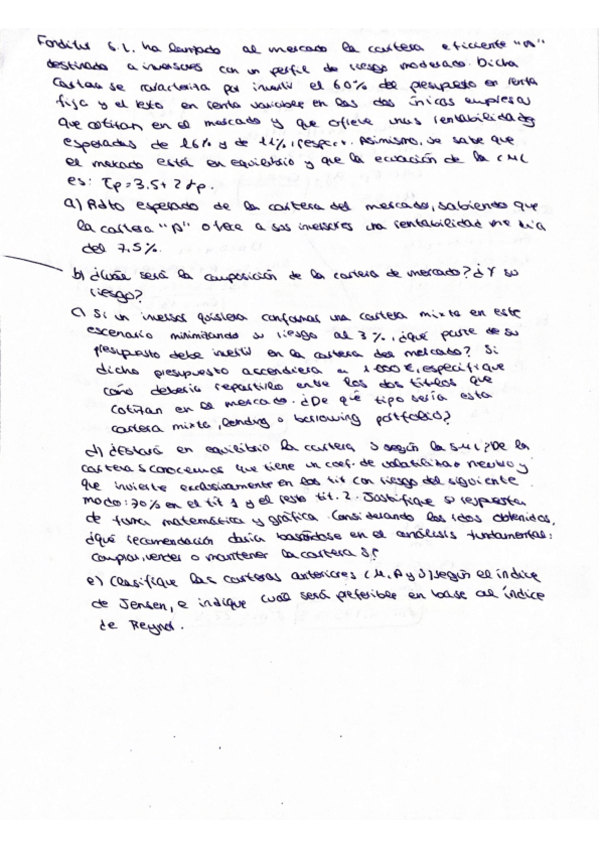 Fonditus S.L. ha lanzado al mercado la cartera eficiente "A"
destinada a inversores con un perfil de riesgo moderado. Dicha
Cartera se caracteriza por invertir el 60% del presupuesto en renta
fija y el resto en renta variable en las dos únicas empresas
que cotizan en el mercado y que ofrece unas rentabilidades
esperadas de 16% y de 11%, respect. Asimismo, se sabe que
el mercado está en equilibrio y que la ecuación de la CML
es: = 3.5 + 2
a) Rdto esperado de la cartera del mercado, sabiendo que
la cartera "A" ofrece a sus inversores una rentabilidad media
del 7,5%.
b) ¿Cuál será la composición de la cartera de mercado? ¿Y su
riesgo?
c) Si un inversor quisiera conformar una cartera mixta en este
escenario minimizando su riesgo al 3%, ¿qué parte de su
presupuesto debe invertir en la cartera del mercado? Si
dicho presupuesto ascendiera a 1.000 €, especifique
cómo debería repartirlo entre los dos títulos que
cotizan en el mercado. ¿De qué tipo sería esta
cartera mixta, lending o borrowing portfolio?
d) ¿Estará en equilibrio la cartera S según la SML? De la
cartera S conocemos que tiene un coef. de volatilidad neutro y
que invierte exclusivamente en los tít con riesgo del siguiente
modo: 70% en el tít 1 y el resto tít. 2. Justifique su respuesta
de forma matemática y gráfica. Considerando los rdos obtenidos,
¿qué recomendación daría basándose en el análisis fundamental:
comprar, vender o mantener la cartera S?
e) Clasifique las carteras anteriores (M, A y S) según el índice
de Jensen, e indique cuál será preferible en base al índice
de Treynor.